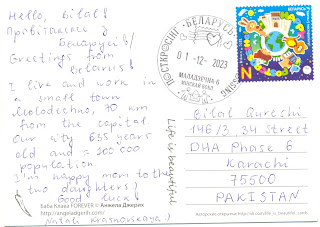 Hello, Bilal!
Прывітанне з
Беларусі!
Greetings from
Belarus!
I live and work in
a small town
Molodechno, 70 km
from the capital.
Our city 635 years
old and ≈ 900 000
population
I'm happy mom to the
two daughters)
Good luck!
Natali Krasnovskaya)
Баба Клава FOREVER © Анжела Джерих
http://angeladgerih.com/
Life is beautiful
ПОСТКРОСІНГ · БЕЛАРУСЬ
01-12-2023
МАЛАДЗЕЧНА-6
БЕЛАРУСЬ
N
Bilal Qureshi
146/3, 34 Street
DHA Phase 6
Karachi
75500
PAKISTAN